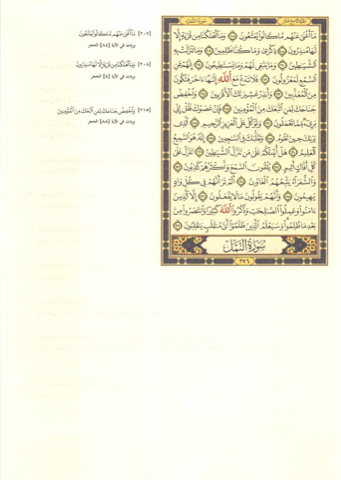 مَآ أَغْنَىٰ عَنْهُم مَّا كَانُوا۟ يُمَتَّعُونَ ۝ وَمَآ أَهْلَكْنَا مِن قَرْيَةٍ إِلَّا
لَهَا مُنذِرُونَ ۝ ذِكْرَىٰ وَمَا كُنَّا ظَٰلِمِينَ ۝ وَمَا تَنَزَّلَتْ بِهِ
ٱلشَّيَٰطِينُ ۝ وَمَا يَنۢبَغِى لَهُمْ وَمَا يَسْتَطِيعُونَ ۝ إِنَّهُمْ عَنِ
ٱلسَّمْعِ لَمَعْزُولُونَ ۝ فَلَا تَدْعُ مَعَ ٱللَّهِ إِلَٰهًا ءَاخَرَ فَتَكُونَ
مِنَ ٱلْمُعَذَّبِينَ ۝ وَأَنذِرْ عَشِيرَتَكَ ٱلْأَقْرَبِينَ ۝ وَٱخْفِضْ
جَنَاحَكَ لِمَنِ ٱتَّبَعَكَ مِنَ ٱلْمُؤْمِنِينَ ۝ فَإِنْ عَصَوْكَ فَقُلْ إِنِّى
بَرِىٓءٌ مِّمَّا تَعْمَلُونَ ۝ وَتَوَكَّلْ عَلَى ٱلْعَزِيزِ ٱلرَّحِيمِ ۝ ٱلَّذِى
يَرَىٰكَ حِينَ تَقُومُ ۝ وَتَقَلُّبَكَ فِى ٱلسَّٰجِدِينَ ۝ إِنَّهُۥ هُوَ ٱلسَّمِيعُ
ٱلْعَلِيمُ ۝ هَلْ أُنَبِّئُكُمْ عَلَىٰ مَن تَنَزَّلُ ٱلشَّيَٰطِينُ ۝ تَنَزَّلُ عَلَىٰ
كُلِّ أَفَّاكٍ أَثِيمٍ ۝ يُلْقُونَ ٱلسَّمْعَ وَأَكْثَرُهُمْ كَٰذِبُونَ ۝
وَٱلشُّعَرَآءُ يَتَّبِعُهُمُ ٱلْغَاوُۥنَ ۝ أَلَمْ تَرَ أَنَّهُمْ فِى كُلِّ وَادٍ
يَهِيمُونَ ۝ وَأَنَّهُمْ يَقُولُونَ مَا لَا يَفْعَلُونَ ۝ إِلَّا ٱلَّذِينَ
ءَامَنُوا۟ وَعَمِلُوا۟ ٱلصَّٰلِحَٰتِ وَذَكَرُوا۟ ٱللَّهَ كَثِيرًا وَٱنتَصَرُوا۟ مِنۢ
بَعْدِ مَا ظُلِمُوا۟ وَسَيَعْلَمُ ٱلَّذِينَ ظَلَمُوٓا۟ أَىَّ مُنقَلَبٍ يَنقَلِبُونَ ۝
سُورَةُ النَّمْلِ
٣٧٦
[٢٠٧] مَآ أَغْنَىٰ عَنْهُم مَّا كَانُوا۟ يُمَتَّعُونَ
وردت في الآية [٨٤] الحجر
[٢٠٨] وَمَآ أَهْلَكْنَا مِن قَرْيَةٍ إِلَّا لَهَا مُنذِرُونَ
وردت في الآية [٤] الحجر
[٢١٥] وَٱخْفِضْ جَنَاحَكَ لِمَنِ ٱتَّبَعَكَ مِنَ ٱلْمُؤْمِنِينَ
وردت في الآية [٨٨] الحجر